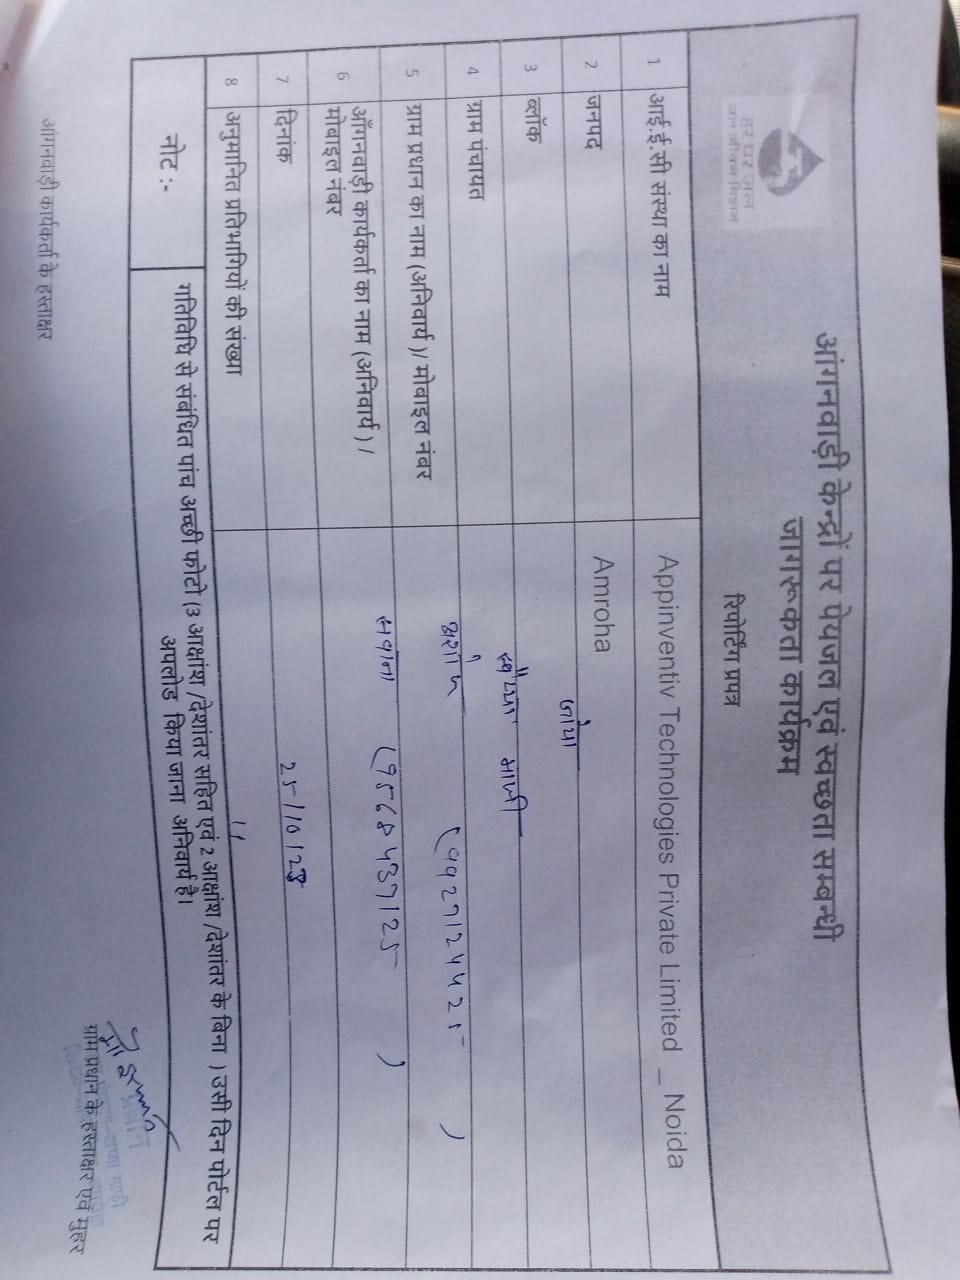 हर घर जल
जल जीवन मिशन
आंगनवाड़ी केन्द्रों पर पेयजल एवं स्वच्छता सम्बन्धी
जागरूकता कार्यक्रम
रिपोर्टिंग प्रपत्र
1 आई.ई.सी संस्था का नाम Appinventiv Technologies Private Limited _ Noida
2 जनपद Amroha
3 ब्लॉक जोया
4 ग्राम पंचायत माफी
5 ग्राम प्रधान का नाम (अनिवार्य )/ मोबाइल नंबर
6 ऑंगनवाड़ी कार्यकर्ता का नाम (अनिवार्य ) /
मोबाइल नंबर (9568437125)
7 दिनांक 25/10/23
8 अनुमानित प्रतिभागियों की संख्या 11
नोट :- गतिविधि से संबंधित पांच अच्छी फोटो (3 आक्षांश /देशांतर सहित एवं 2 आक्षांश /देशांतर के बिना ) उसी दिन पोर्टल पर
अपलोड किया जाना अनिवार्य है।
आंगनवाड़ी कार्यकर्ता के हस्ताक्षर
ग्राम प्रधान के हस्ताक्षर एवं मुहर